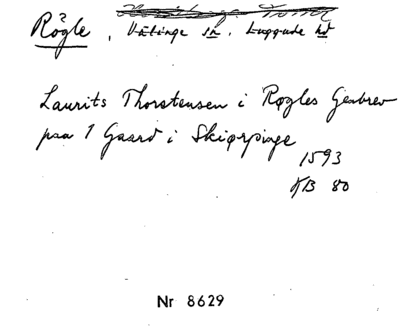 Rögle, Välinge sn. Luggude hd
Laurits Thorstensen i Røgles Gienbrev
paa 1 Gaard i Skiørpinge
1593
KB 80
Nr 8629